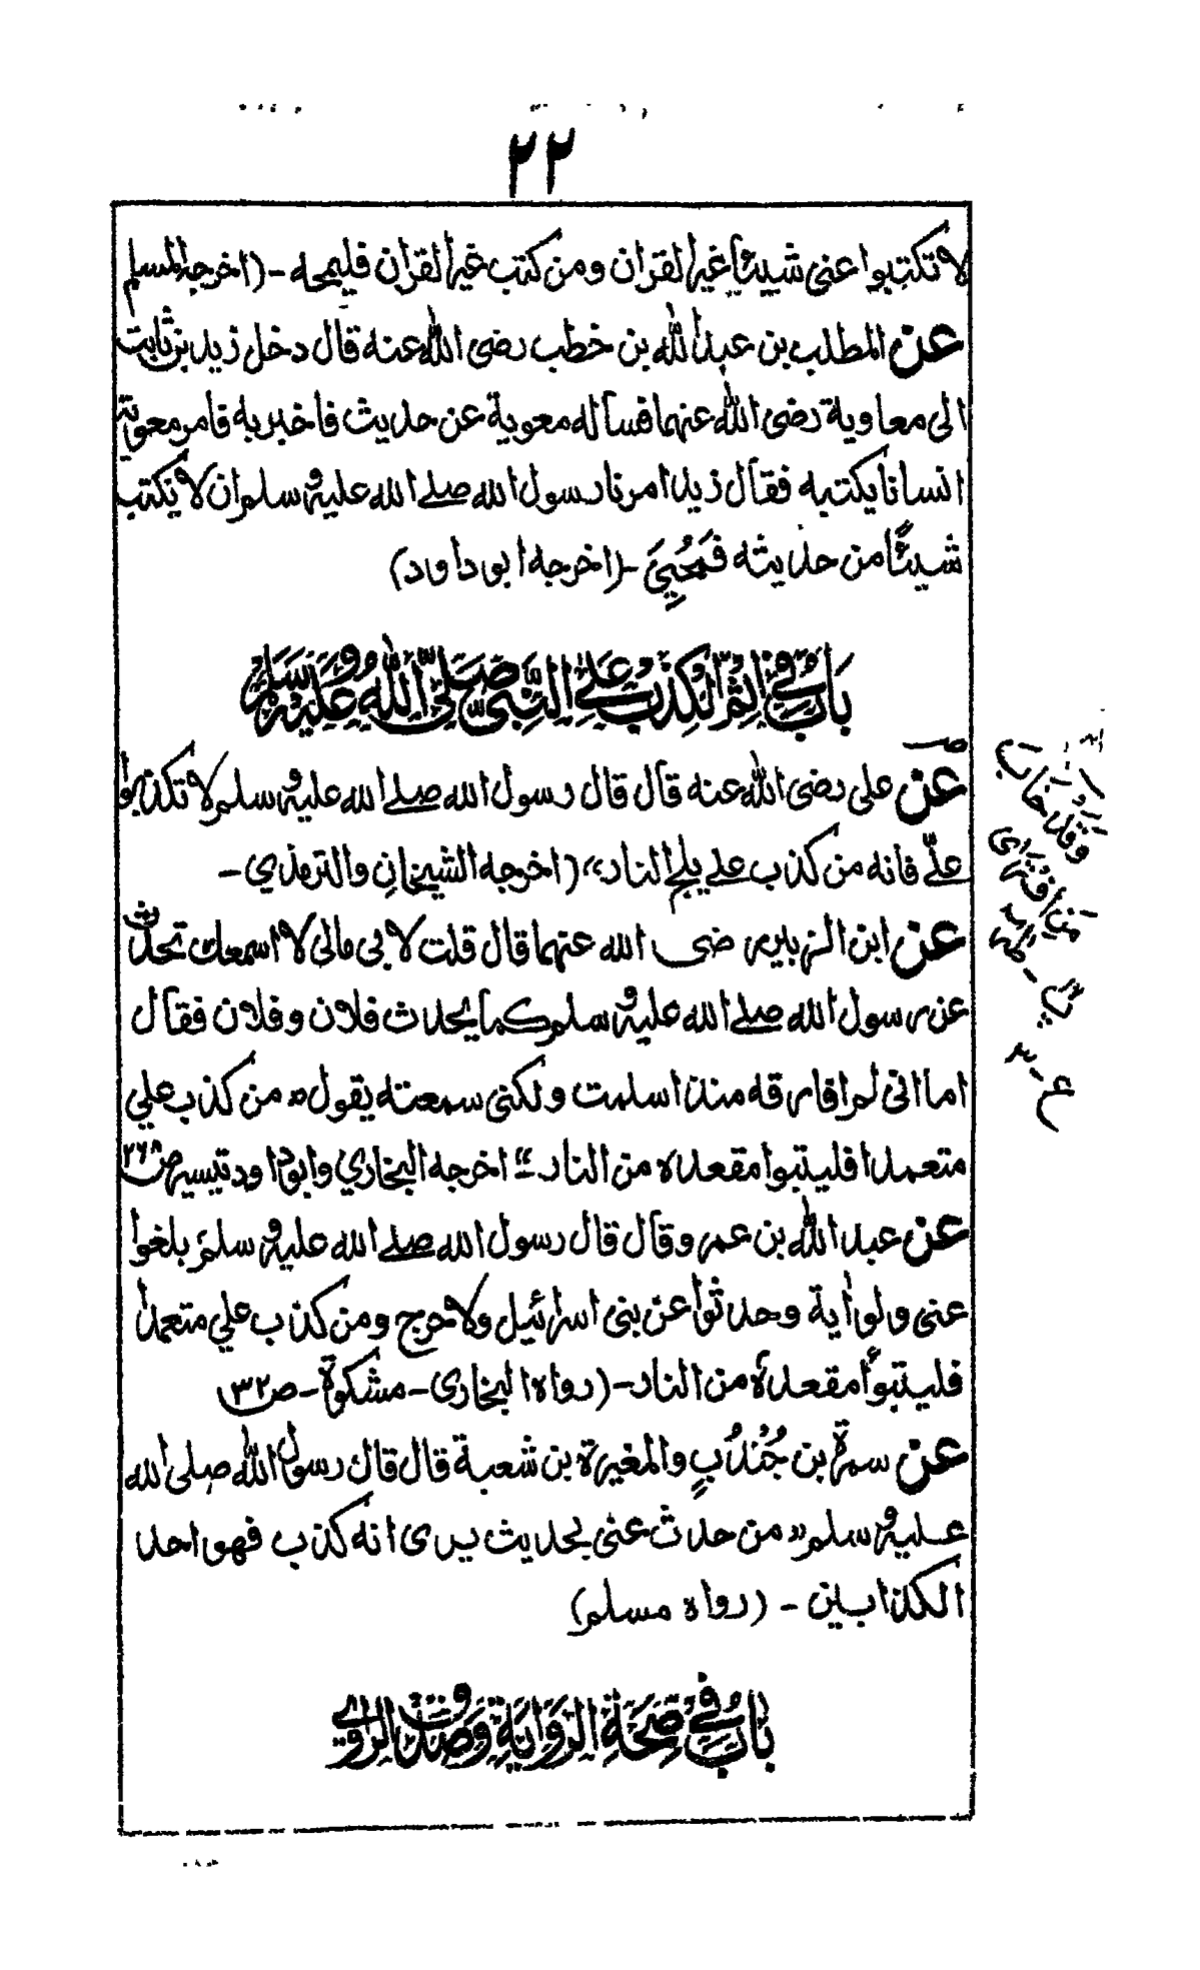 ٢٢
لا تكتبوا عنى شيئا غير القران ومن كتب غير القران فليمحه - (اخرجه المسلم
عن المطلب بن عبد الله بن خطب رضى الله عنه قال دخل زيد بن ثابت
الى معاوية رضى الله عنهما فسأله معوية عن حديث فاخبر به فامر معوية
انسانا يكتبه فقال زيد امرنا رسول الله صلے الله عليه وسلم ان لا يكتب
شيئًا من حديثه فَمُحِيَ - (اخرجه ابو داود)
بَابٌ فِي اِثْمِ الْكِذْبِ عَلَى النَّبِيِّ صَلَّى اللهُ عَلَيْهِ وَسَلَّمَ
عن على رضى الله عنه قال قال رسول الله صلے الله عليه وسلم لا تكذبوا
علىّ فانه من كذب على يلج النار،، (اخرجه الشيخان والترمذي -
عن ابن الزبير رضى الله عنهما قال قلت لابى مالى لا اسمعك تحدث
عن رسول الله صلے الله عليه وسلم كما يحدث فلان وفلان فقال
اما انى لم افارقه منذ اسلمت ولكنى سمعته يقول ،، من كذب علي
متعمدا فليتبوا مقعده من النار - ،، اخرجه البخاري وابوداود تيسير ص ٢٦٨
عن عبد الله بن عمرو قال قال رسول الله صلے الله عليه وسلم بلغوا
عنى ولو اية وحدثوا عن بنى اسرائيل ولا حرج ومن كذب علي متعمدا
فليتبوأ مقعدهٗ من النار - (رواه البخارى - مشكوٰة - ص ٣٢
عن سمرة بن جُنْدُبٍ والمغيرة بن شعبة قال قال رسول الله صلى الله
عليه وسلم ،، من حدث عنى بحديث يرى انه كذب فهو احد
الكذابين - (رواه مسلم)
بَابٌ فِي صِحَّةِ الرِّوَايَةِ وَصِدْقِ الرَّاوِي
وَقَدْ خَابَ
مَنِ افْتَرَى
ع - ٣